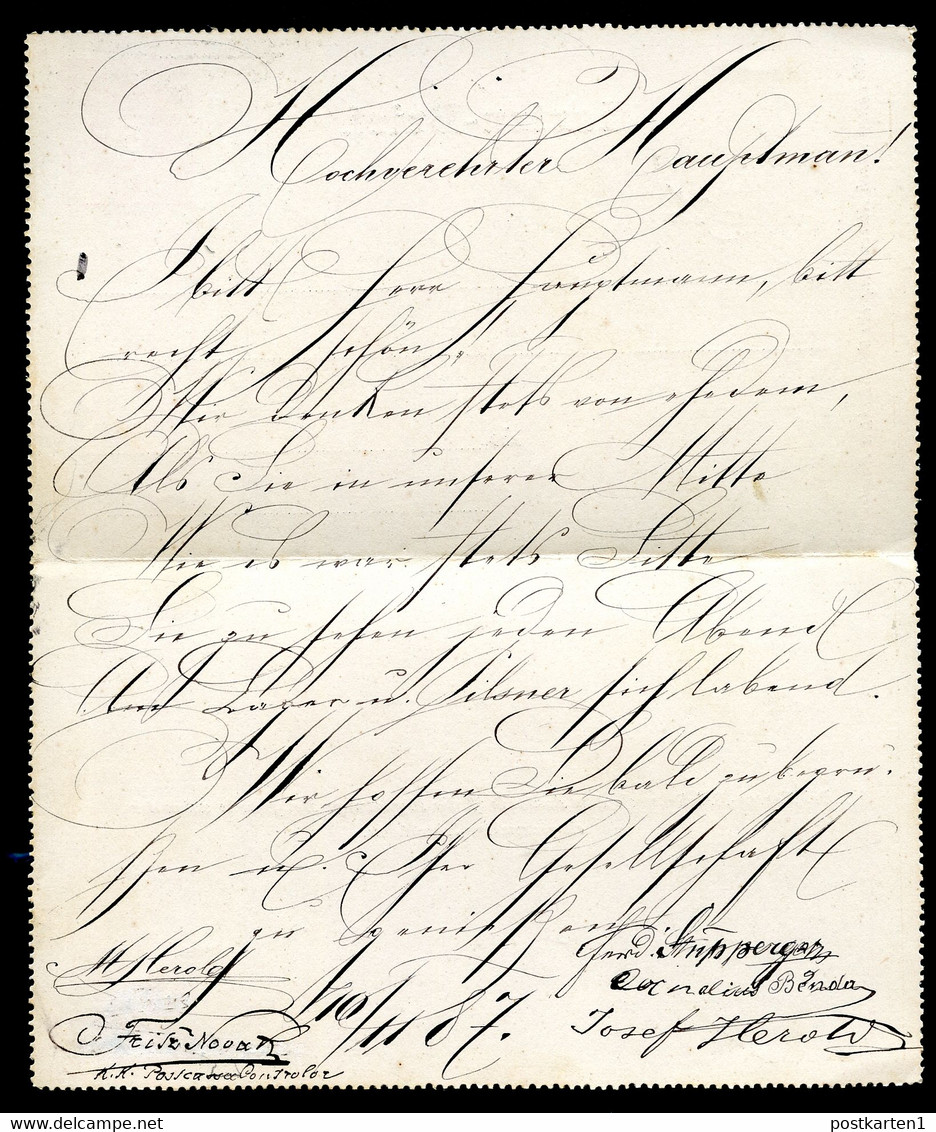 Hochverehrter Hauptmañ!
I bitt Herr Hauptmann, bitt
recht schön!
Wir denken stets von ehedem,
Als Sie in unserer Mitte
Wie es war stets Sitte
Sie zu sehen jeden Abend
And Lager u. Pilsner sich labend.
Wir hoffen Sie bald zu begrü-
ßen u. Gesellschaft
zu
M Herold
Ferd. Stupperger
Cornelius Benda
10/11 87.
Josef Herold
Fritz Novak
K. K. Postcassa Controlor
postkarten1